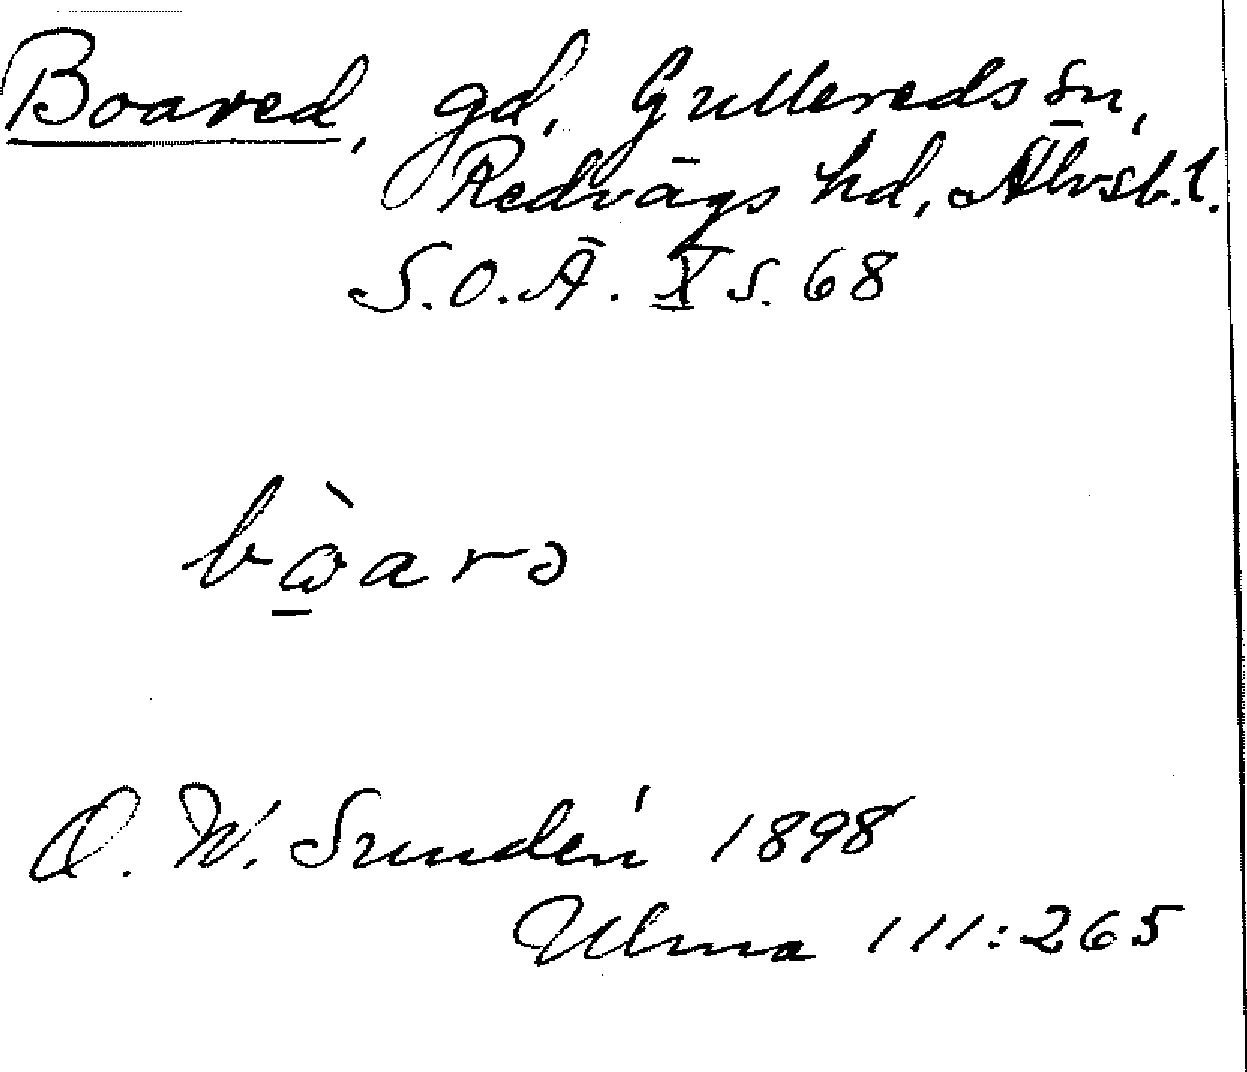 Boared, gd, Gullereds sn,
Redvägs hd, Älvsb.l.
S.O.Ä. X s. 68
bòarə
D. W. Sundén 1898
Ulma 111:265